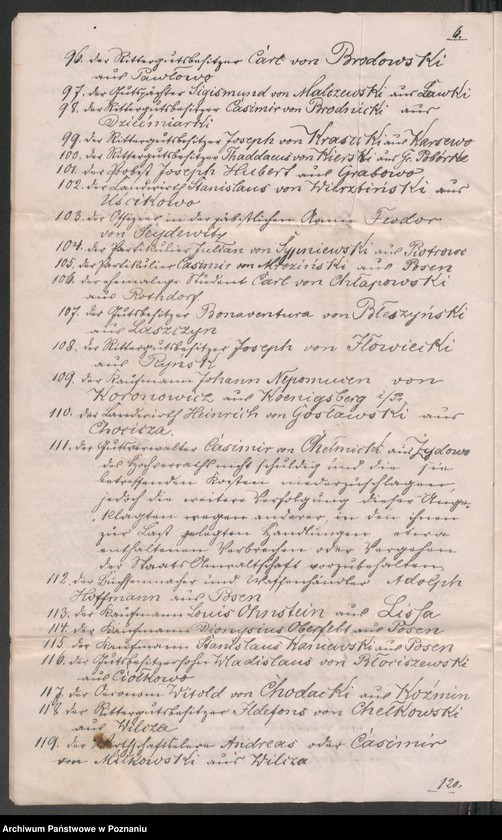 6.
96. der Rittergutsbesitzer Carl von Brodowski
aus Pawlowo
97. der Gutspächter Sigismund von Malczewski aus Lawki
98. der Rittergutsbesitzer Casimir von Brodnicki aus
Dzieciniarki
99. der Rittergutsbesitzer Joseph von Krasicki aus Karsewo
100. der Rittergutsbesitzer Thaddaeus von Kierski aus G. Pobórke
101. der Probst Joseph Hubert aus Grabowo
102. der Landwirth Stanislaus von Wierzbiński aus
Uscikowo
103. der Offizier in der päbstlichen Armee Teodor
von Seydewitz
104. der Partikulier Julian von Sypniewski aus Piotrowo
105. der Partikulier Casimir von Mrozinski aus Posen
106. der ehemalige Student Carl von Chlapowski
aus Rothdorf
107. der Gutsbesitzer Bonaventura von Błeszyński
aus Laszczyn
108. der Rittergutsbesitzer Joseph von Ilowiecki
aus Rynsk
109. der Kaufmann Johann Nepomucen von
Koronowicz aus Koenigsberg i/Pr.
110. der Landwirth Heinrich von Gosławski aus
Chocicza.
111. der Gutsverwalter Casimir von Chełmicki aus Zydowo
des Hochverraths nicht schuldig und die sie
betreffenden Kosten niederzuschlagen,
jedoch die weitere Verfolgung dieser Ange-
klagten wegen anderer, in den ihnen
zur Last gelegten Handlungen etwa
enthaltenen Verbrechen oder Vergehen
der Staats Anwaltschaft vorzubehalten,
112. der Büchsenmacher und Waffenhändler Adolph
Hoffmann aus Posen
113. der Kaufmann Louis Ohnstein aus Lissa
114. der Kaufmann Dionysius Oberfelt aus Posen
115. der Kaufmann Stanislaus Kaniewski aus Posen
116. der Gutsbesitzersohn Wladislaus von Błociszewski
aus Ciółkowo
117. der Oeconom Witold von Chodacki aus Koźmin
118 der Rittergutsbesitzer Ildefons von Chełkowski
aus Wilcza
119. der Wirthschaftseleve Andreas oder Casimir
von Miłkowski aus Wilcza
120.
Archiwum Państwowe w Poznaniu
szukajwarchiwach.gov.pl